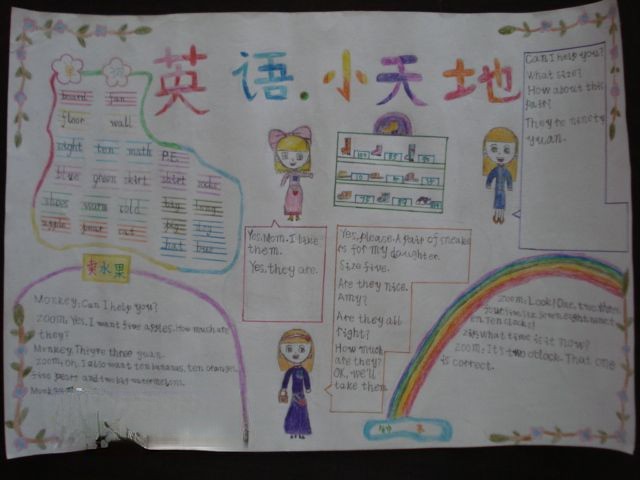 英语.小天地
单词
board fan
floor wall
eight ten math P.E.
blue green skirt shirt socks
shoes warm cold big long
apple pear cat
hat bus
Can I help you?
What size?
How about this
pair?
They're ninety
yuan.
Yes, Mom. I take
them.
Yes, they are.
Yes, please. A pair of sneak
ers for my daughter.
Size five.
Are they nice.
Amy?
Are they all
right?
How much
are they?
OK, we'll
take them
卖水果
Monkey: Can I help you?
Zoom: Yes. I want five apples. How much are
they?
Monkey: They're three yuan.
Zoom: Oh, I also want ten bananas, ten oranges,
five pears and two big watermelons.
Zoom: Look! One, two, three,
four, five, six, seven, eight, nine, t
en. Ten clocks!
Zip: What time is it now?
Zoom: It's two o'clock. That one
is correct.